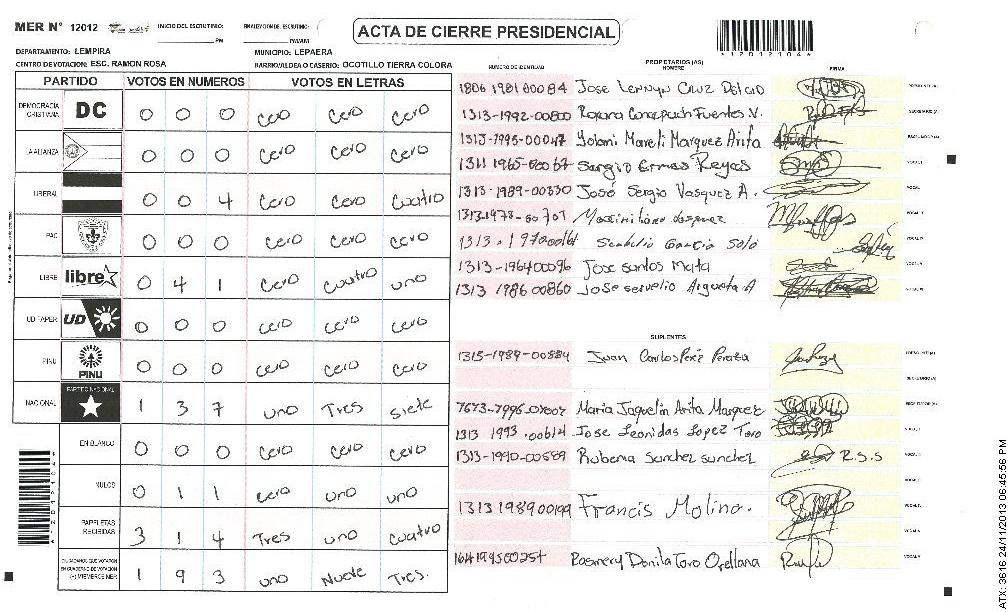 MER N° 12012 INICIO DEL ESCRUTINIO: PM FINALIZACION DEL ESCRUTINIO: PM/AM
ACTA DE CIERRE PRESIDENCIAL
*12012104*
DEPARTAMENTO: LEMPIRA MUNICIPIO: LEPAERA
CENTRO DE VOTACION: ESC. RAMON ROSA BARRIO/ALDEA O CASERIO: OCOTILLO TIERRA COLORA
PARTIDO VOTOS EN NUMEROS VOTOS EN LETRAS
DEMOCRACIA CRISTIANA DC 0 0 0 cero cero cero
ALIANZA 0 0 0 cero cero cero
LIBERAL 0 0 4 cero cero cuatro
PAC 0 0 0 cero cero cero
LIBRE libre 0 4 1 cero cuatro uno
UD FAPER UD 0 0 0 cero cero cero
PINU PINU 0 0 0 cero cero cero
NACIONAL PARTIDO NACIONAL 1 3 7 uno Tres siete
EN BLANCO 0 0 0 cero cero cero
NULOS 0 1 1 cero uno uno
PAPELETAS RECIBIDAS 3 1 4 Tres uno cuatro
CIUDADANOS QUE VOTARON EN CUADERNO DE VOTACION (+) MIEMBROS MER 1 9 3 uno Nueve Tres.
NUMERO DE IDENTIDAD PROPIETARIOS (AS) NOMBRE FIRMA
1806 1981 00084 Jose Lennyn Cruz Delcid PRESIDENTE (A)
1313-1992-00800 Roxana Concepción Fuentes V. SECRETARIO (A)
1313-1995-00047 Yolani Mareli Marquez Arita ESCRUTADOR (A)
1311 1965-00067 Sergio Ermas Reyes VOCAL I
1313-1989-00330 José Sergio Vasquez A. VOCAL
1313-1978-00707 Maximiliano Vasquez VOCAL
1313-1970-00161 Garcia Soto VOCAL
1313-1964 00096 Jose santos Mata VOCAL
1313 1986 00860 Jose servelio Argueta A VOCAL
SUPLENTES
1315-1989-00884 Juan Carlos Perez Peraza PRESIDENTE (A)
SECRETARIO (A)
Maria Jaquelin Arita Marquez ESCRUTADOR (A)
1313 1993 00614 Jose Leonidas Lopez Toro VOCAL
1313-1990-00589 Rubenia Sanchez sanchez R.S.S VOCAL
1313 1989 00199 Francis Molina. VOCAL
Rosmery Donila Toro Orellana VOCAL
*12012104*
ATX: 3616 24/11/2013 06:45:56 PM